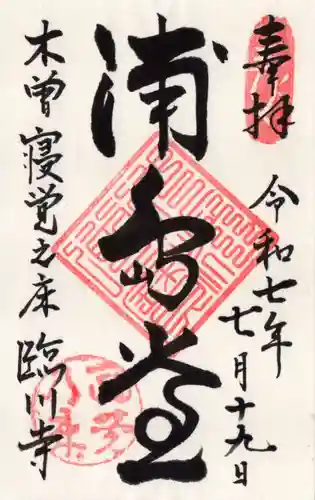 奉拝
令和七年
七月十九日
浦島堂
木曽寝覚之床 臨川寺